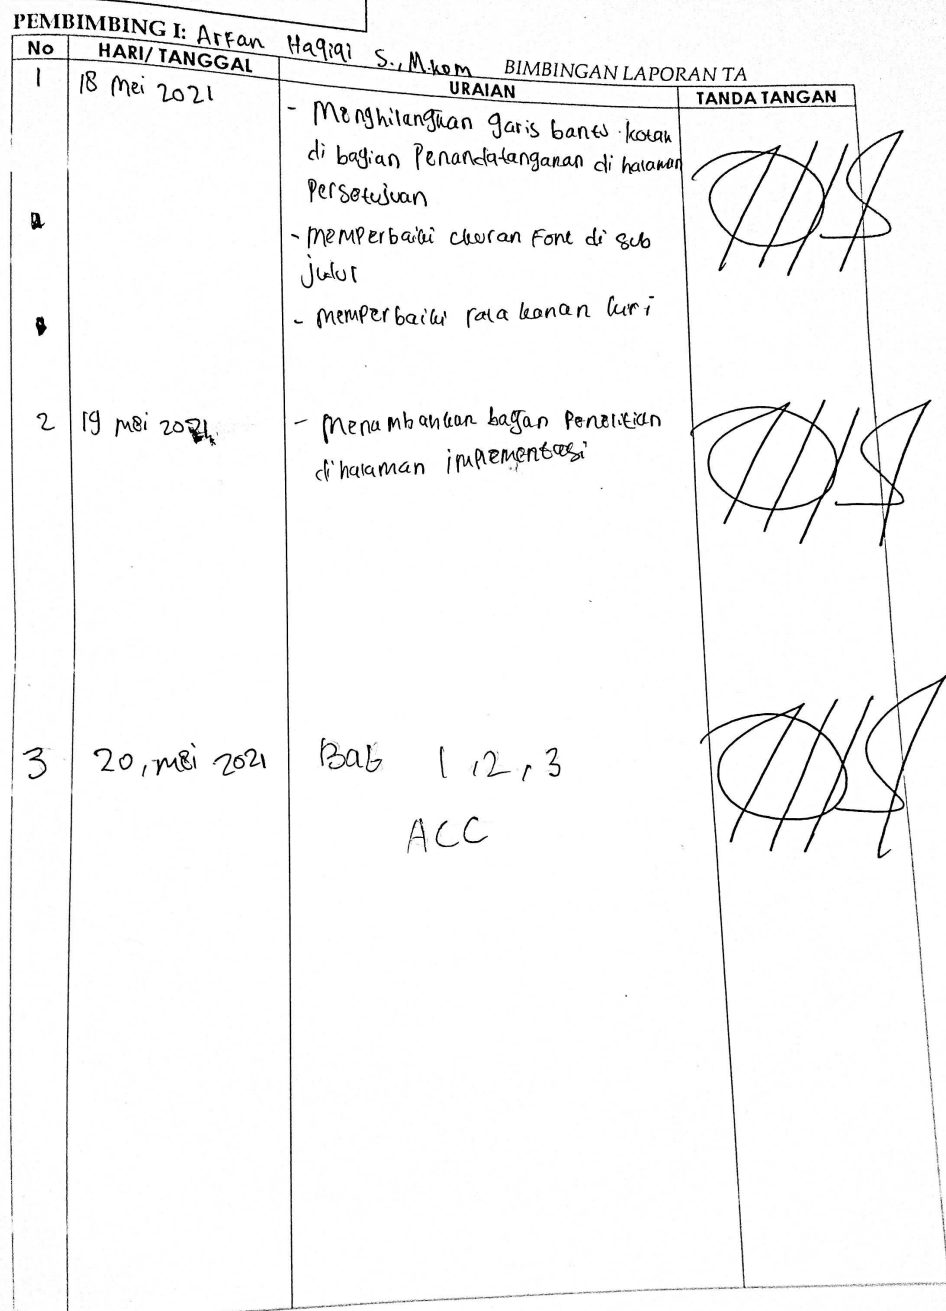 PEMBIMBING I: Arfan Haqiqi S., M.kom BIMBINGAN LAPORAN TA
No HARI/ TANGGAL URAIAN TANDA TANGAN
1 18 Mei 2021 - Menghilangkan garis bantu kotak
di bagian Penandatanganan di halaman
Persetujuan
- memperbaiki ukuran Font di sub
judul
- memperbaiki rata kanan kiri
2 19 mei 2021 - Menambahkan bagan Penelitian
dihalaman implementasi
3 20, mei 2021 Bab 1, 2, 3
ACC